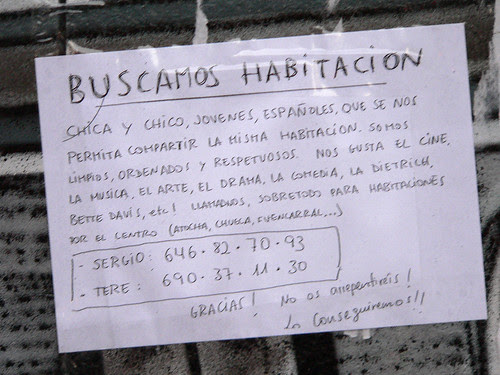 BUSCAMOS HABITACION
CHICA Y CHICO, JOVENES, ESPAÑOLES, QUE SE NOS
PERMITA COMPARTIR LA MISMA HABITACION. SOMOS
LIMPIOS, ORDENADOS Y RESPETUOSOS. NOS GUSTA EL CINE,
LA MUSICA, EL ARTE, EL DRAMA, LA COMEDIA, LA DIETRICH,
BETTE DAVIS, etc! LLAMADNOS, SOBRETODO PARA HABITACIONES
POR EL CENTRO (ATOCHA, CHUECA, FUENCARRAL,...)
- SERGIO: 646.82.70.93
- TERE: 690.37.11.30
GRACIAS! No os arrepentiréis!
Lo Conseguiremos!!